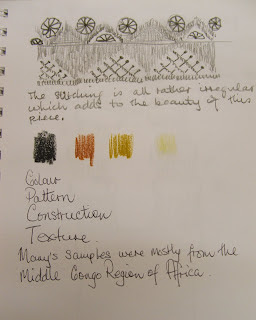 The stitching is all rather irregular
which adds to the beauty of this
piece.
Colour
Pattern
Construction
Texture.
Mary's samples were mostly from the
Middle Congo Region of Africa.